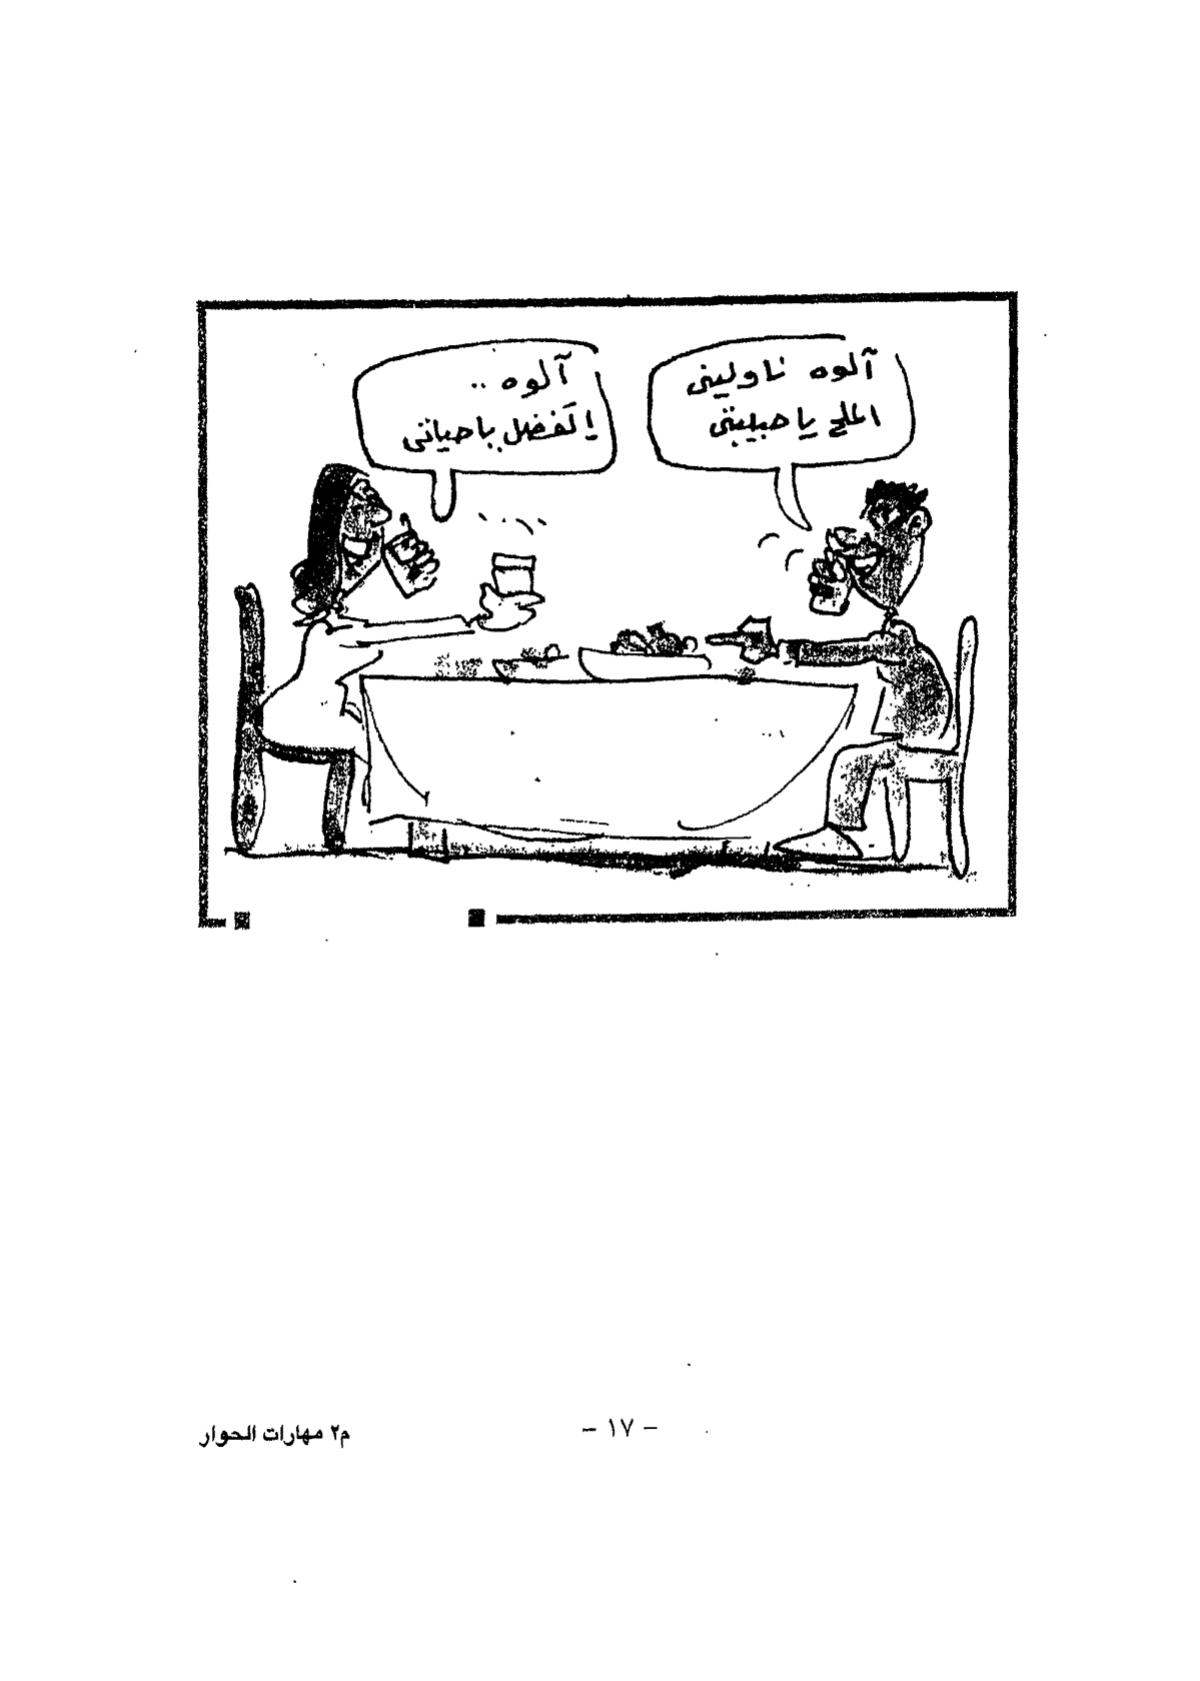 آلوه ناولينى
الملح يا حبيبتى
آلوه ..
إتفضل يا حياتى
- ١٧ -
م٢ مهارات الحوار